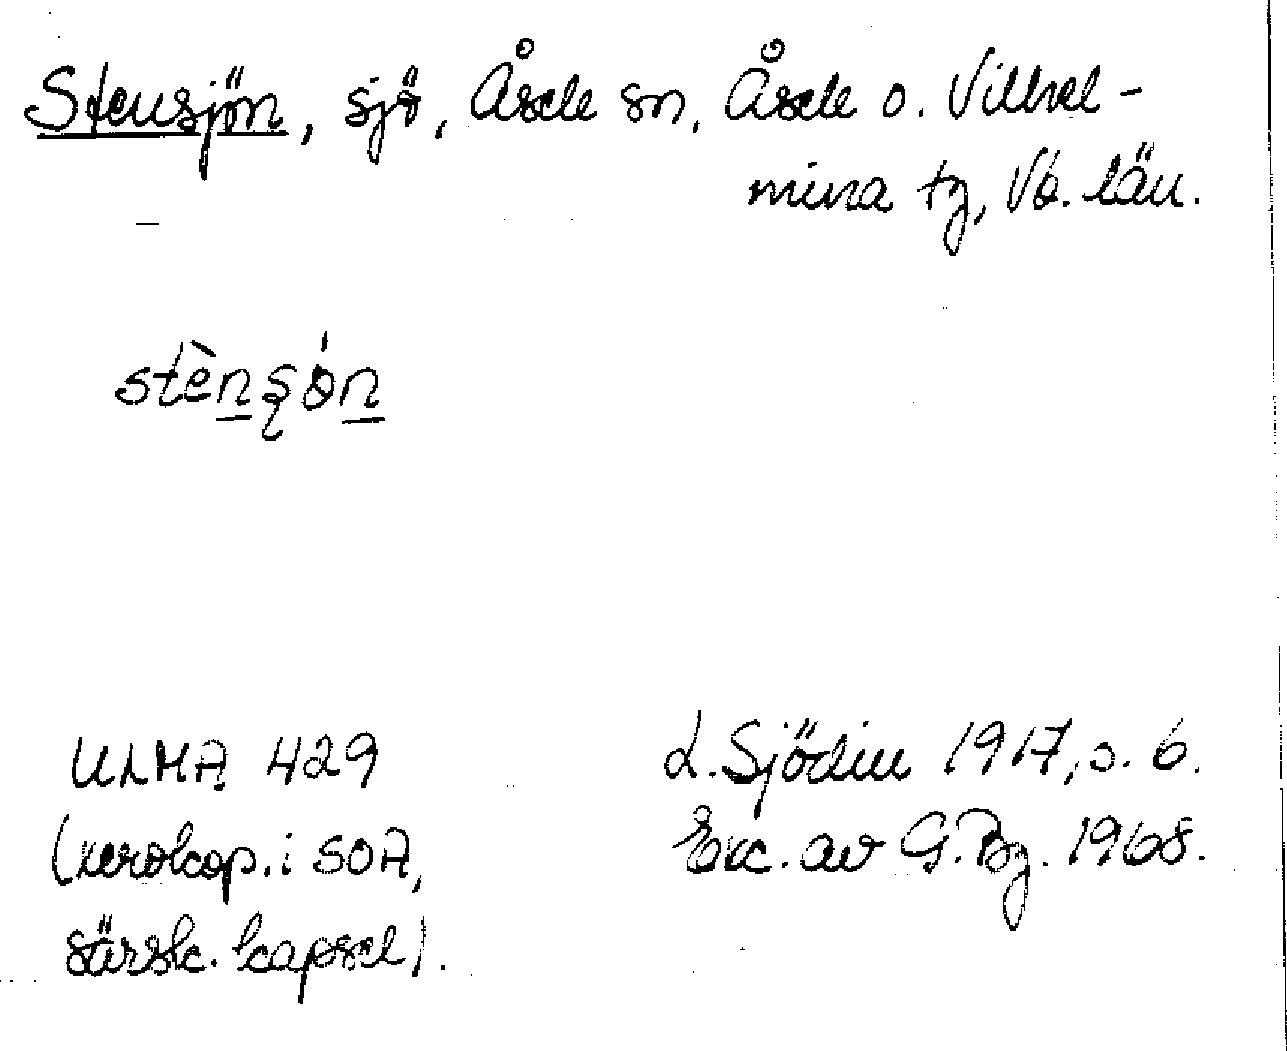 Stensjön, sjö, Åsele sn, Åsele o. Vilhel-
mina tg, Vb. län.
stènʂón
ULMA 429
(xerokop. i SOA,
särsk. kapsel).
L. Sjödin 1917, s. 6.
Exc. av G. Bg. 1968.